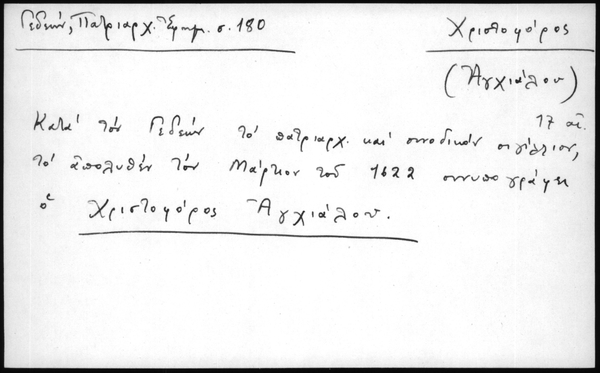 Γεδεών, Πατριαρχ. Ἐφημ. σ. 180
Χριστοφόρος
(Ἀγχιάλου)
17 αἰ.
Κατά τόν Γεδεών τό πατριαρχ. καί συνοδικόν σιγίλλιον,
τό ἀπολυθέν τόν Μάρτιον τοῦ 1622 συνυπογράφει
ὁ Χριστοφόρος Ἀγχιάλου.